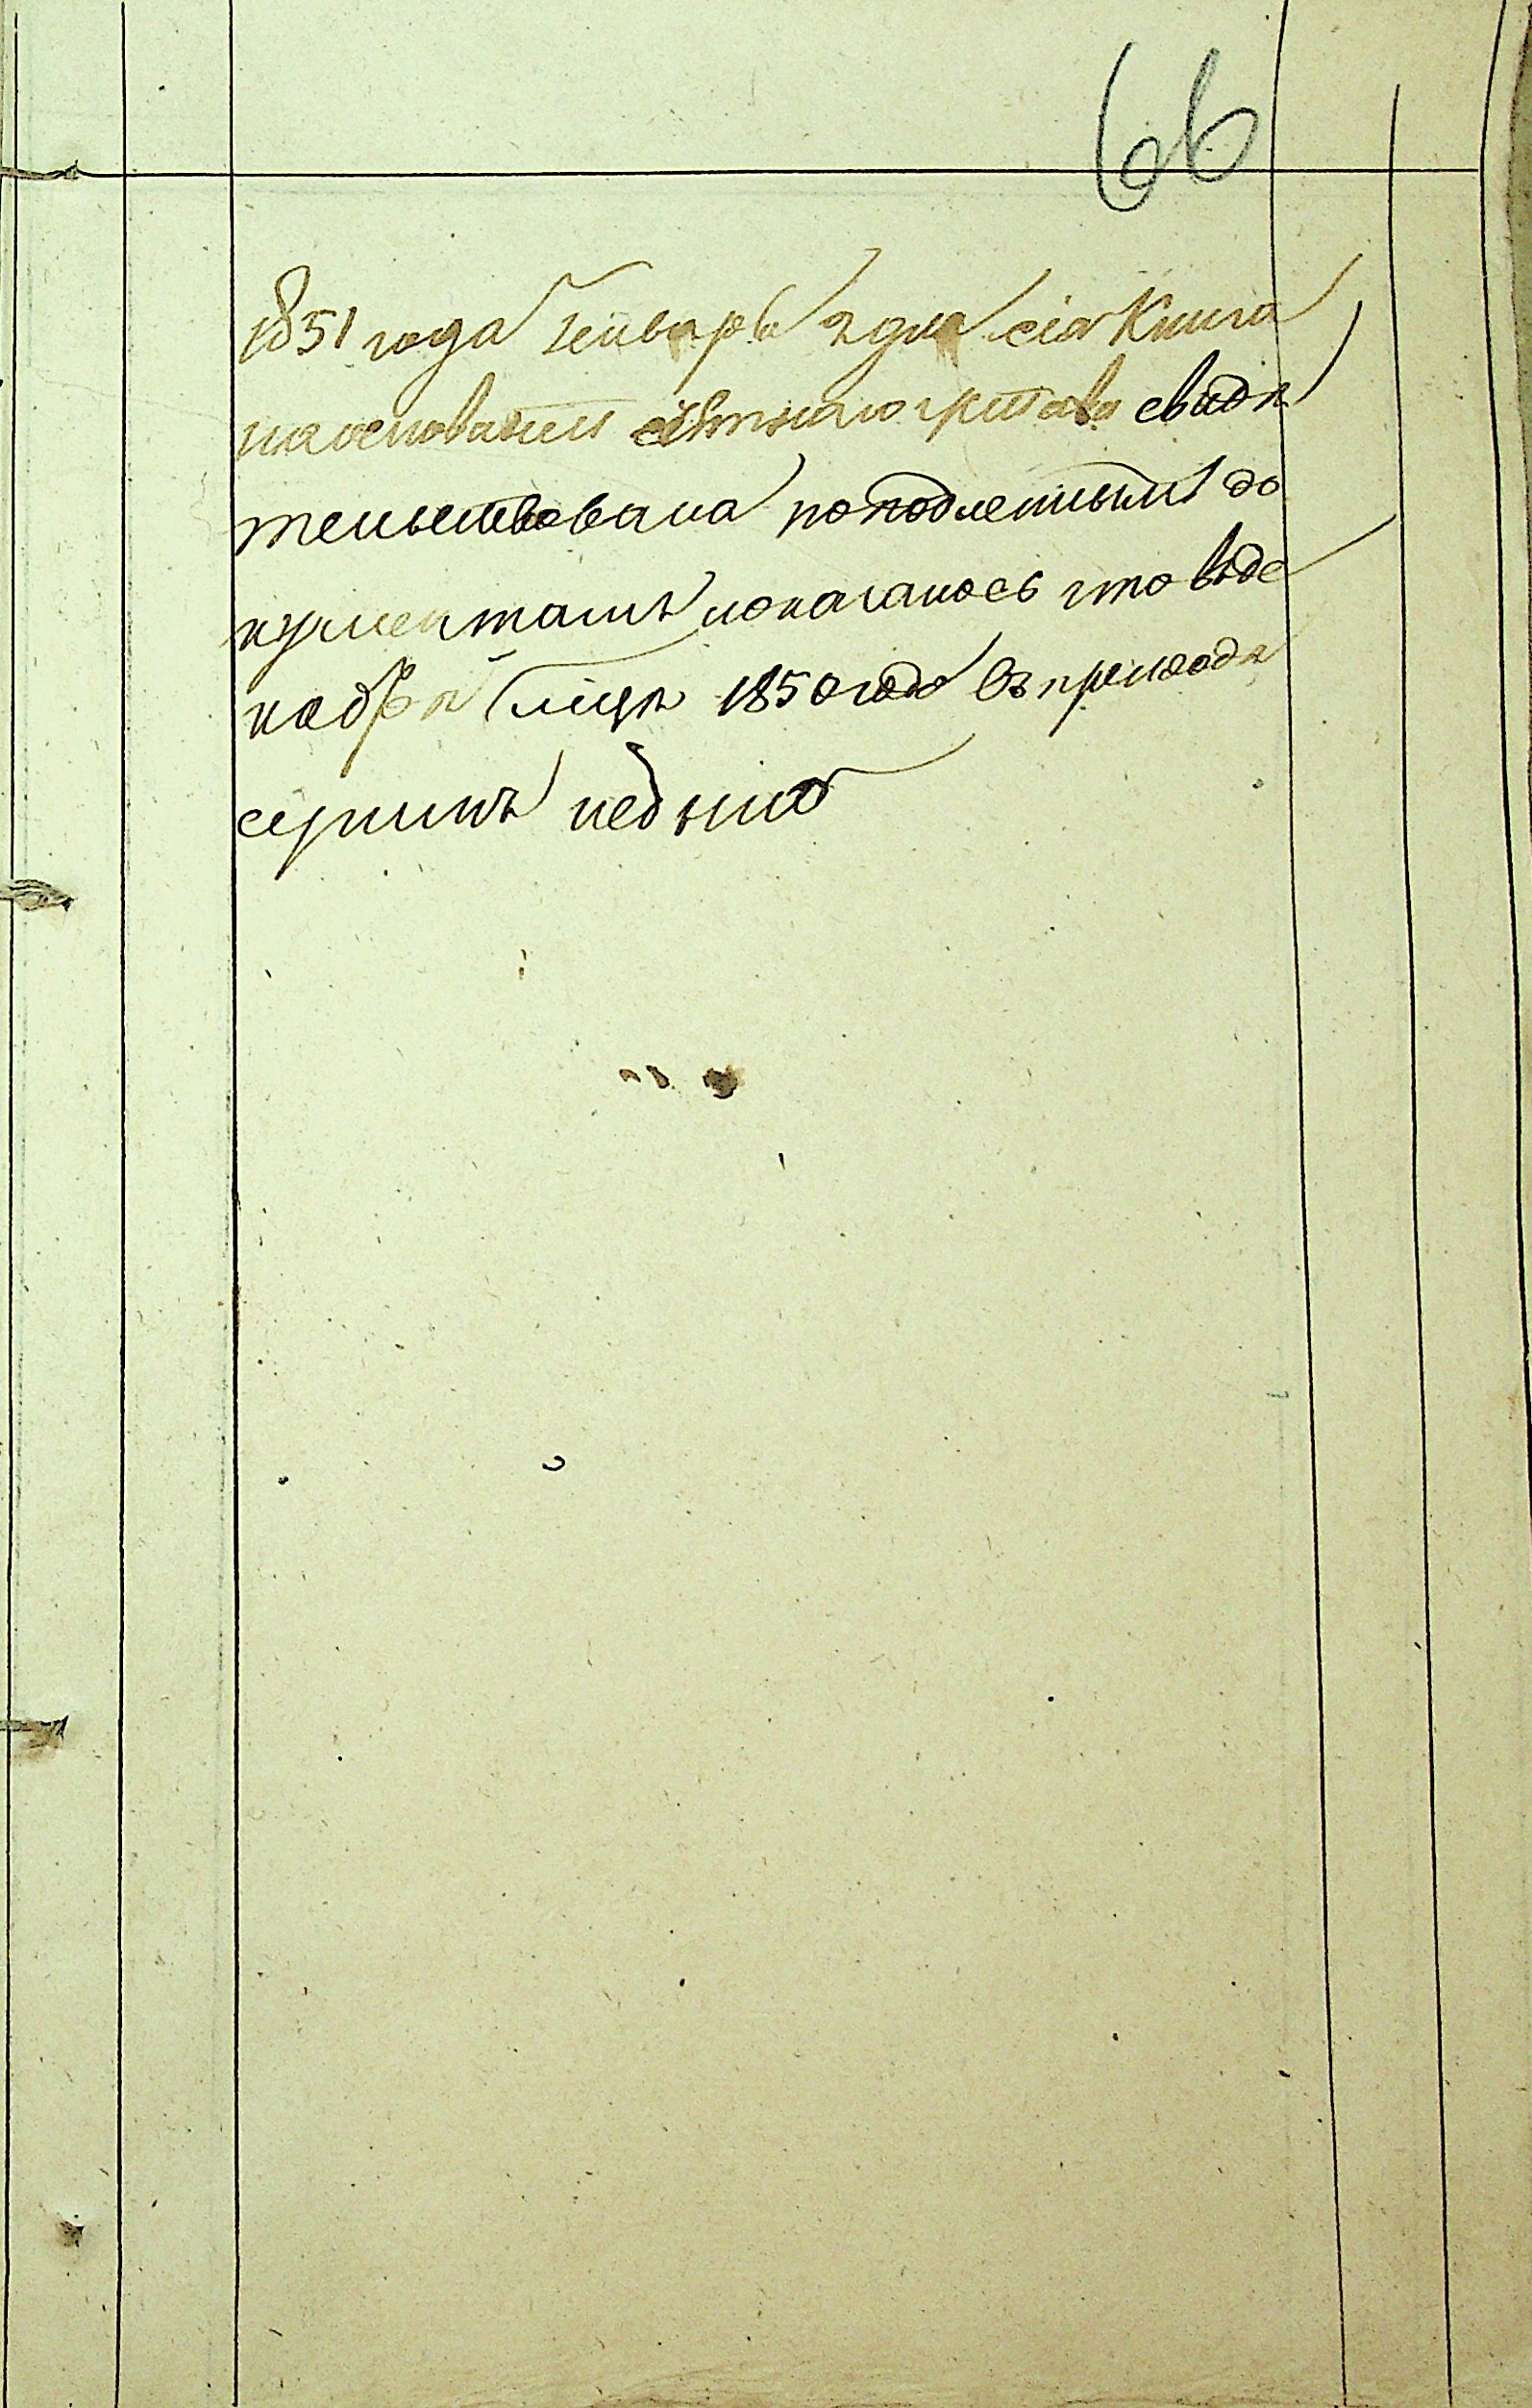 66
1851 года Генваря 2 дня сія Книга
на основаніи счетнаго устава свидѣ
тельствована по подлепнымъ до
кументамъ показалось что въ де
кабрѣ мцѣ 1850 года въ приходѣ
суммъ небыло